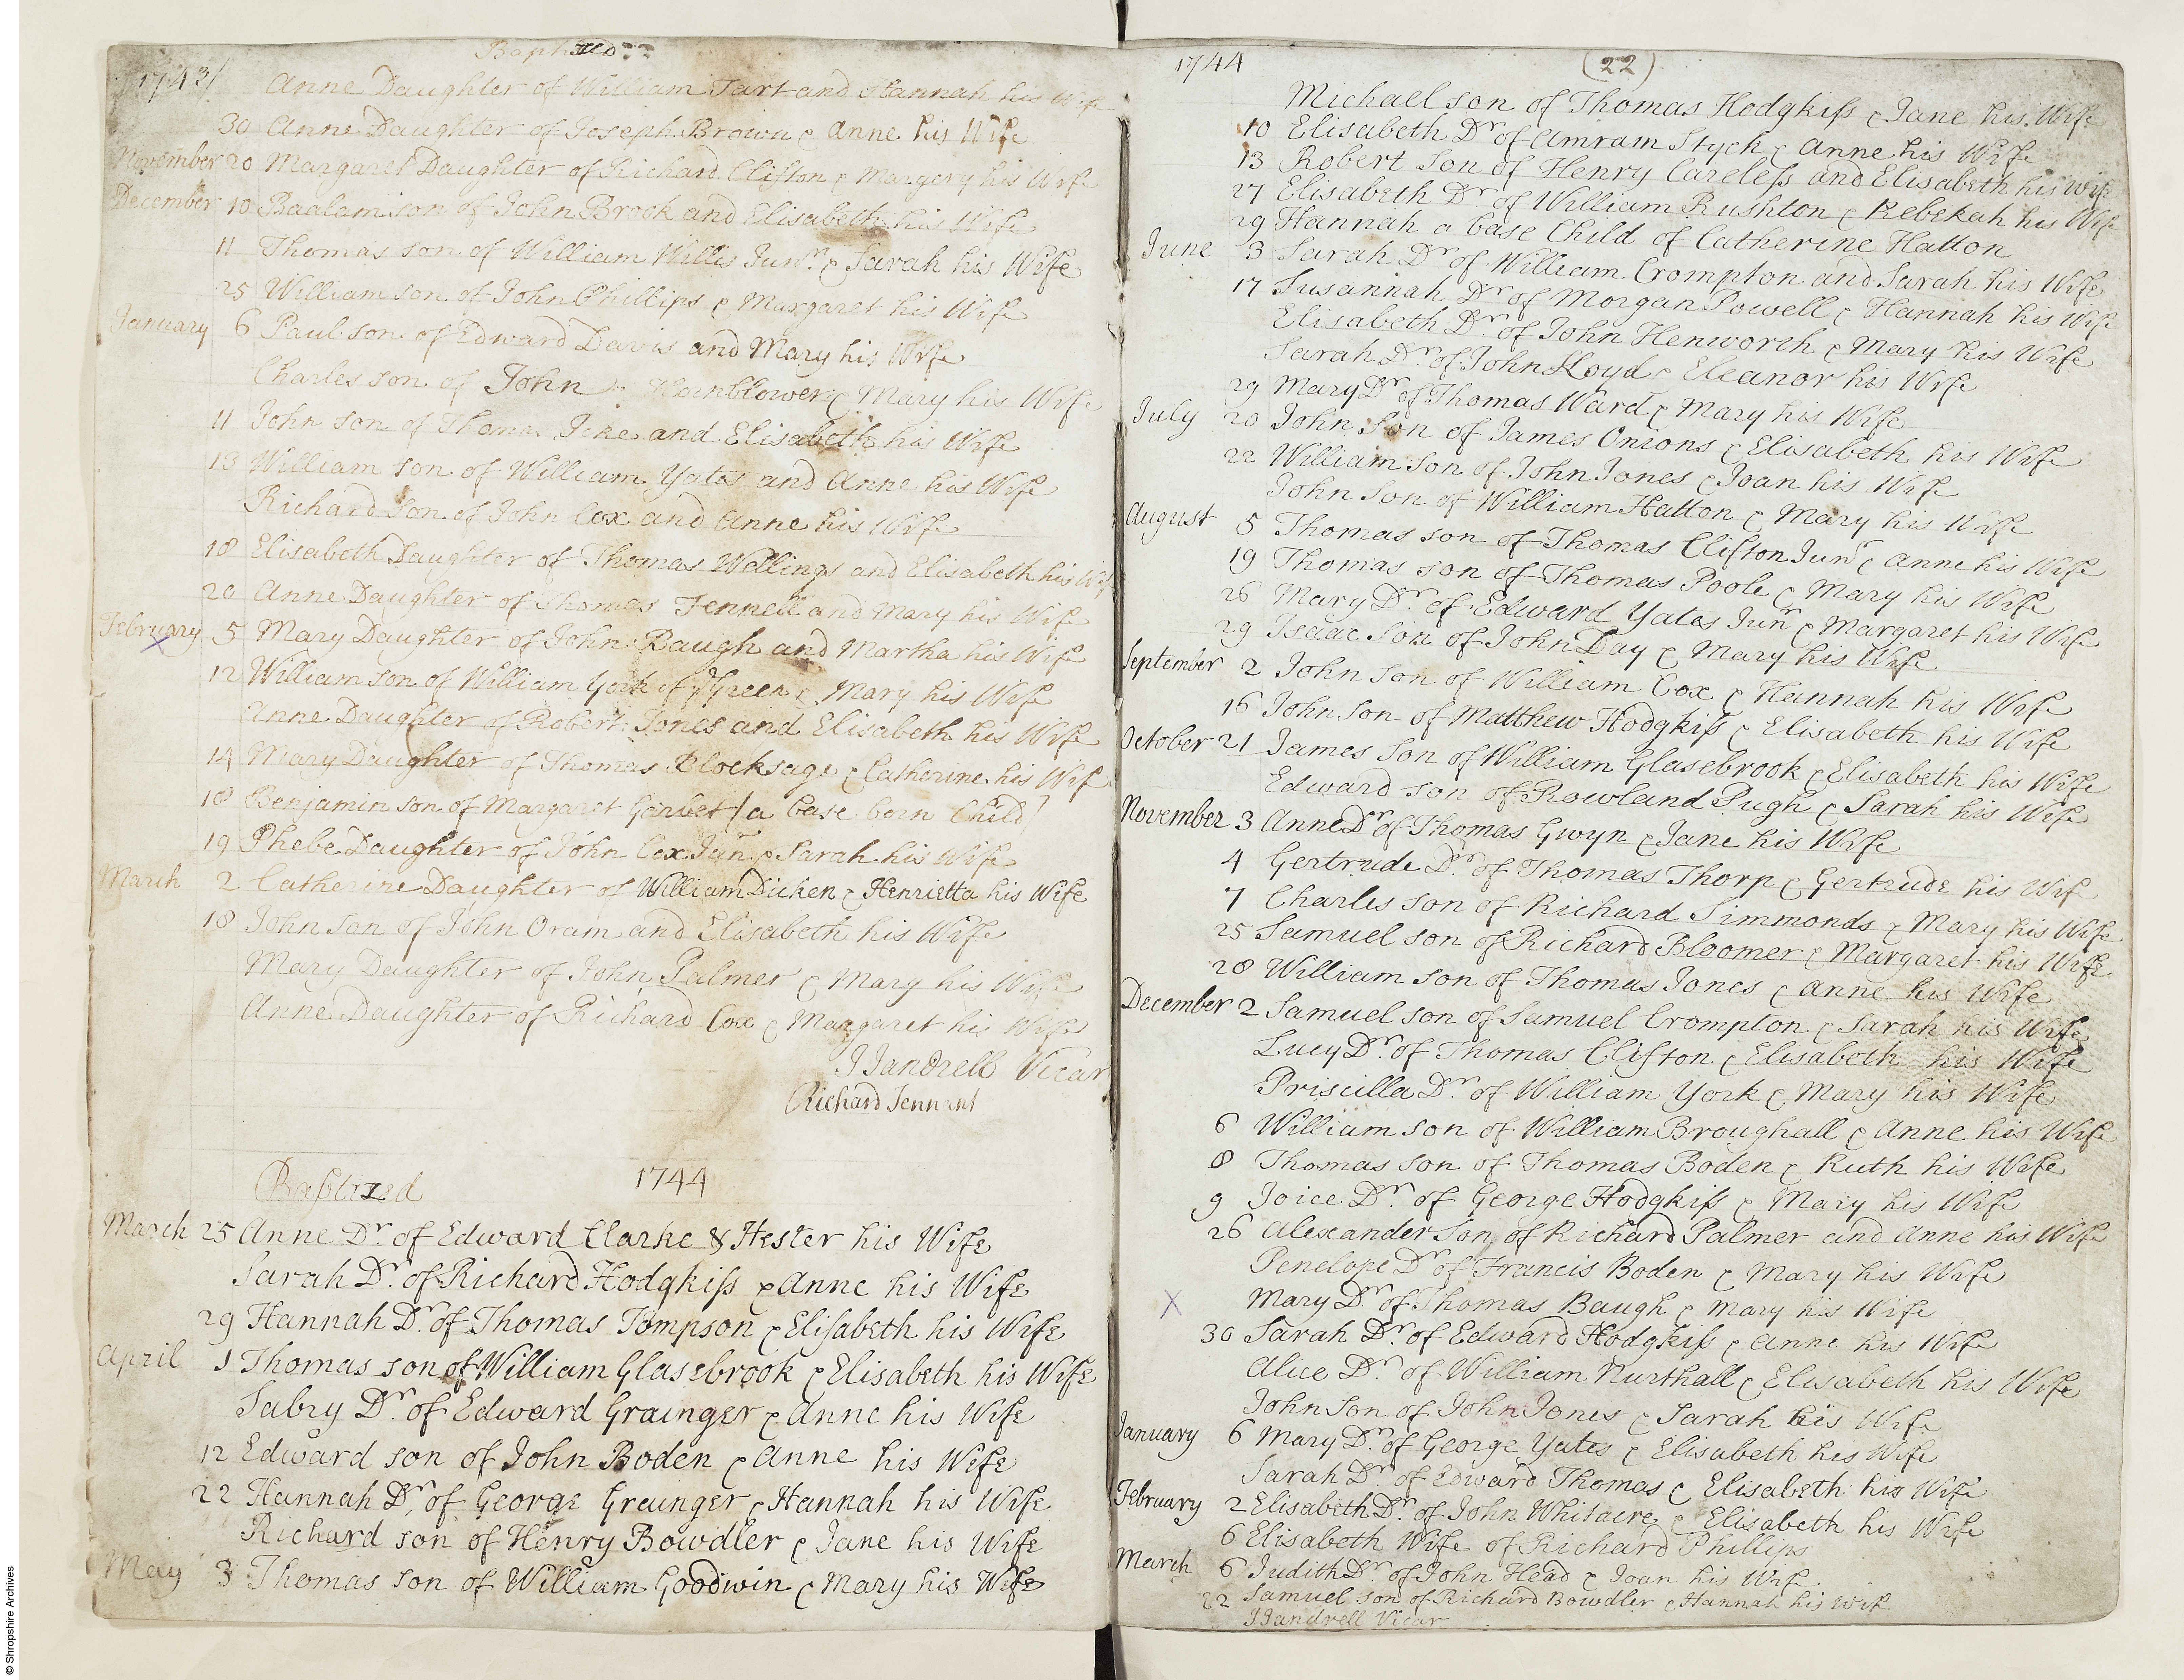 Baptized
1743
Anne Daughter of William Tart and Hannah his Wife
30 Anne Daughter of Joseph Brown & Anne his Wife
November 20 Margaret Daughter of Richard Clifton & Margery his Wife
December 10 Baalam son of John Brook and Elisabeth his Wife
11 Thomas son of William Willis Junr. & Sarah his Wife
25 William son of John Phillips & Margaret his Wife
January 6 Paul son of Edward Davis and Mary his Wife
Charles son of John Hornblower & Mary his Wife
11 John son of Thomas Icke and Elisabeth his Wife
13 William son of William Yates and Anne his Wife
Richard Son of John Cox and Anne his Wife
18 Elisabeth Daughter of Thomas Wellings and Elisabeth his Wif
20 Anne Daughter of Thomas Fennell and Mary his Wife
February 5 Mary Daughter of John Baugh and Martha his Wife
12 William son of William York of ye Green & Mary his Wife
Anne Daughter of Robert Jones and Elisabeth his Wife
14 Mary Daughter of Thomas Blocksage & Catherine his Wife
18 Benjamin son of Margaret (a base born Child)
19 Phebe Daughter of John Cox Junr. & Sarah his Wife
March 2 Catherine Daughter of William Dicken & Henrietta his Wife
18 John Son of John Oram and Elisabeth his Wife
Mary Daughter of John Palmer & Mary his Wife
Anne Daughter of Richard Cox & Margaret his Wife
J Jandrell Vicar
Richard Jennant
Baptized 1744
March 25 Anne Dr. of Edward Clarke & Hester his Wife
Sarah Dr. of Richard Hodgkiss & Anne his Wife
29 Hannah Dr. of Thomas Tompson & Elisabeth his Wife
April 1 Thomas son of William Glasebrook & Elisabeth his Wife
Sabry Dr. of Edward Grainger & Anne his Wife
12 Edward son of John Boden & Anne his Wife
22 Hannah Dr. of George Grainger & Hannah his Wife
Richard son of Henry Bowdler & Jane his Wife
May 3 Thomas son of William Goodwin & Mary his Wife
1744 (22)
Michael son of Thomas Hodgkiss & Jane his Wife
10 Elisabeth Dr. of Amram Stych & Anne his Wife
13 Robert Son of Henry Careless and Elisabeth his Wife
27 Elisabeth Dr. of William Rushton & Rebekah his Wife
29 Hannah a base Child of Catherine Hatton
June 3 Sarah Dr. of William Crompton and Sarah his Wife
17 Susannah Dr. of Morgan Powell & Hannah his Wife
Elisabeth Dr. of John Henworth & Mary his Wife
Sarah Dr. of John Lloyd & Eleanor his Wife
29 Mary Dr. of Thomas Ward & Mary his Wife
July 20 John Son of James Onions & Elisabeth his Wife
22 William Son of John Jones & Joan his Wife
John Son of William Hatton & Mary his Wife
August 5 Thomas son of Thomas Clifton Junr. & Anne his Wife
19 Thomas son of Thomas Poole & Mary his Wife
26 Mary Dr. of Edward Yates Junr. & Margaret his Wife
29 Isaac Son of John Day & Mary his Wife
September 2 John Son of William Cox & Hannah his Wife
16 John Son of Matthew Hodgkiss & Elisabeth his Wife
October 21 James Son of William Glasebrook & Elisabeth his Wife
Edward son of Rowland Pugh & Sarah his Wife
November 3 Anne Dr. of Thomas Gwyn & Jane his Wife
4 Gertrude Dr. of Thomas Thorp & Gertrude his Wife
7 Charles son of Richard Simmonds & Mary his Wife
25 Samuel son of Richard Bloomer & Margaret his Wife
28 William son of Thomas Jones & Anne his Wife
December 2 Samuel son of Samuel Crompton & Sarah his Wife
Lucy Dr. of Thomas Clifton & Elisabeth his Wife
Priscilla Dr. of William York & Mary his Wife
6 William son of William Broughall & Anne his Wife
8 Thomas son of Thomas Boden & Ruth his Wife
9 Joice Dr. of George Hodgkiss & Mary his Wife
26 Alexander Son of Richard Palmer and Anne his Wife
Penelope Dr. of Francis Boden & Mary his Wife
Mary Dr. of Thomas Baugh & Mary his Wife
30 Sarah Dr. of Edward Hodgkiss & Anne his Wife
Alice Dr. of William Nurthall & Elisabeth his Wife
John Son of John Jones & Sarah his Wife
January 6 Mary Dr. of George Yates & Elisabeth his Wife
Sarah Dr. of Edward Thomas & Elisabeth his Wife
February 2 Elisabeth Dr. of John Whitacre & Elisabeth his Wife
6 Elisabeth Wife of Richard Phillips
March 6 Judith Dr. of John Head & Joan his Wife
22 Samuel son of Richard Bowdler & Hannah his Wife
J Jandrell Vicar
© Shropshire Archives